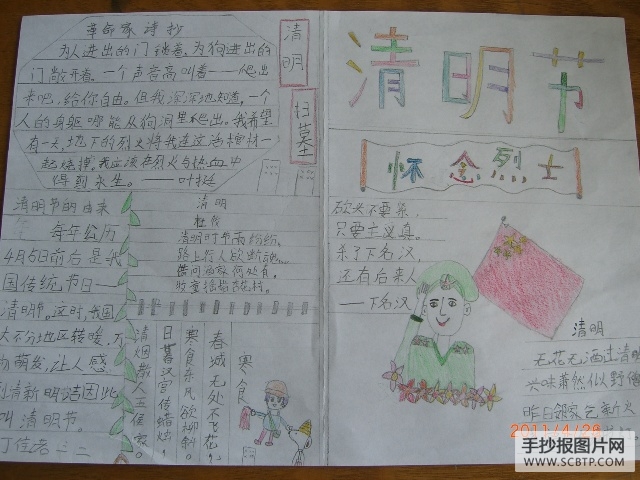 革命家诗抄
为人进出的门锁着,为狗进出的
门敞开着,一个声音高叫着——爬出
来吧,给你自由。但我深深地知道,一个
人的身躯哪能从狗洞里爬出。我希望
有一天,地下的烈火将我连这活棺材一
起烧掉,我应该在烈火与热血中
得到永生。——叶挺
清明
扫墓
清明节
怀念烈士
清明节的由来
每年公历
4月5日前后是我
国传统节日——
清明节。这时,我国
大部分地区转暖,万
物萌发,让人感
到清新明洁因此
叫清明节。
清明
杜牧
清明时节雨纷纷,
路上行人欲断魂。
借问酒家何处有,
牧童遥指杏花村。
寒食
春城无处不飞花,
寒食东风欲柳斜。
日暮汉宫传蜡烛,
清烟散入五侯家
砍头不要紧,
只要主义真。
杀了下名汉,
还有后来人
——下名汉
清明
无花无酒过清明
兴味萧然似野僧
昨日邻家乞新火
2011/4/28
手抄报图片网
WWW.SCBTP.COM